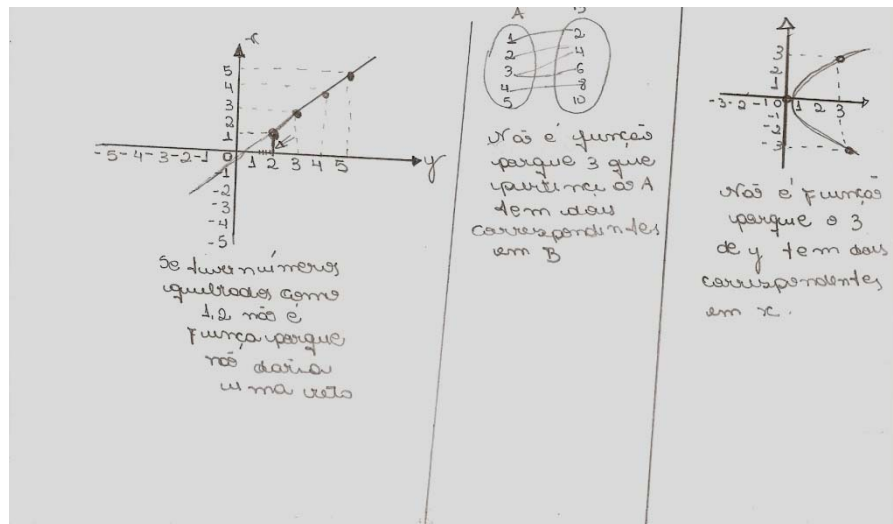 x
5
4
3
2
1
-5 -4 -3 -2 -1 0 1 2 3 4 5 y
-1
-2
-3
-4
-5
Se tiver números
quebrados como
1,2 não é
Função porque
não daria
uma reta
A
1 2
2 4
3 6
4 8
5 10
Não é função
porque 3 que
A
tem dois
correspondentes
em B
3
2
1
-3 -2 -1 0 1 2 3
-1
-2
-3
Não é Função
porque o 3
de y tem dois
correspondentes
em x.